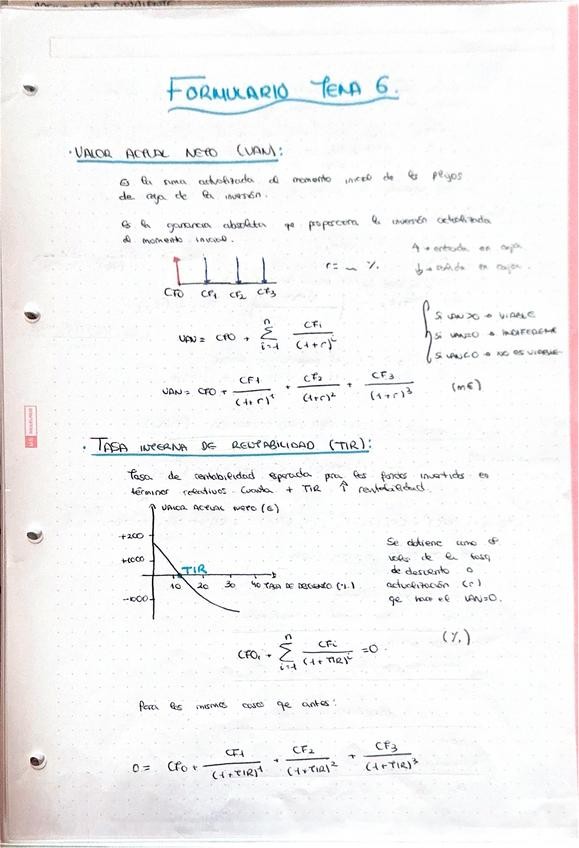 FORMULARIO TEMA 6.
· VALOR ACTUAL NETO (VAN):
Es la suma actualizada al momento inicial de los flujos
de caja de la inversión.
Es la ganancia absoluta que proporciona la inversión actualizada
al momento inicial.
↑ → entrada en caja
↓ → salida en caja.
r = %.
CF0 CF1 CF2 CF3
VAN = CF0 + n Σ i=1 CFi / (1+r)^i
Si VAN>0 → VIABLE
Si VAN=0 → INDIFERENTE
Si VAN<0 → NO ES VIABLE
VAN = CF0 + CF1/(1+r)^1 + CF2/(1+r)^2 + CF3/(1+r)^3 (m€)
· TASA INTERNA DE RENTABILIDAD (TIR):
Tasa de rentabilidad esperada para los fondos invertidos en
términos relativos. Cuanta + TIR ↑ rentabilidad.
VALOR ACTUAL NETO (€)
+200
+1000
TIR
10 20 30 40 TASA DE DESCUENTO (%)
-1000
Se obtiene como el
valor de la tasa
de descuento o
actualización (r)
que hace el VAN=0.
CF0 + n Σ i=1 CFi / (1+TIR)^i = 0 (%)
Para los mismos casos que antes:
0 = CF0 + CF1/(1+TIR)^1 + CF2/(1+TIR)^2 + CF3/(1+TIR)^3